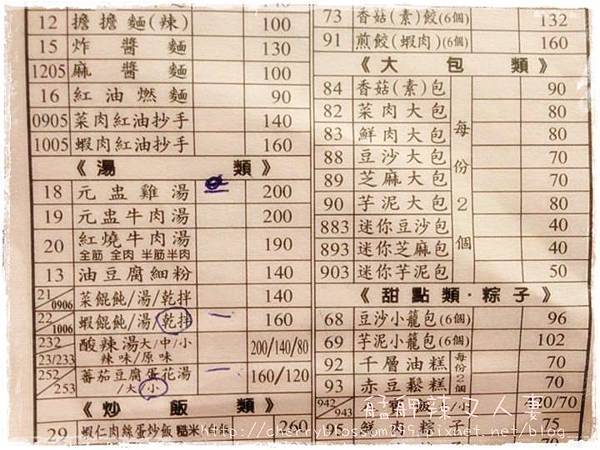 12 擔擔麵(辣) 100
15 炸醬麵 130
1205 麻醬麵 100
16 紅油燃麵 90
0905 菜肉紅油抄手 140
1005 蝦肉紅油抄手 160
《湯類》
18 元盅雞湯 200
19 元盅牛肉湯 200
20 紅燒牛肉湯 190
全筋 全肉 半筋半肉
13 油豆腐細粉 140
21/0906 菜餛飩/湯/乾拌 140
22/1006 蝦餛飩/湯/乾拌 一 160
232 酸辣湯大/中/小 200/140/80
23/233 辣味/原味
252/253 蕃茄豆腐蛋花湯 一 160/120
/大/小
《炒飯類》
29 蝦仁肉絲蛋炒飯 260
73 香菇(素)餃(6個) 132
91 煎餃(蝦肉)(6個) 160
《大包類》
每份2個
84 香菇(素)包 90
82 菜肉大包 80
83 鮮肉大包 70
88 豆沙大包 70
89 芝麻大包 70
90 芋泥大包 80
883 迷你豆沙包 40
893 迷你芝麻包 40
903 迷你芋泥包 50
《甜點類·粽子》
68 豆沙小籠包(6個) 96
69 芋泥小籠包(6個) 102
92 千層油糕 每份2個 70
93 赤豆鬆糕 70
942/943
95 鮮肉粽子 75
艋舺辣又人妻
http://cherryblossom329.pixnet.net/blog